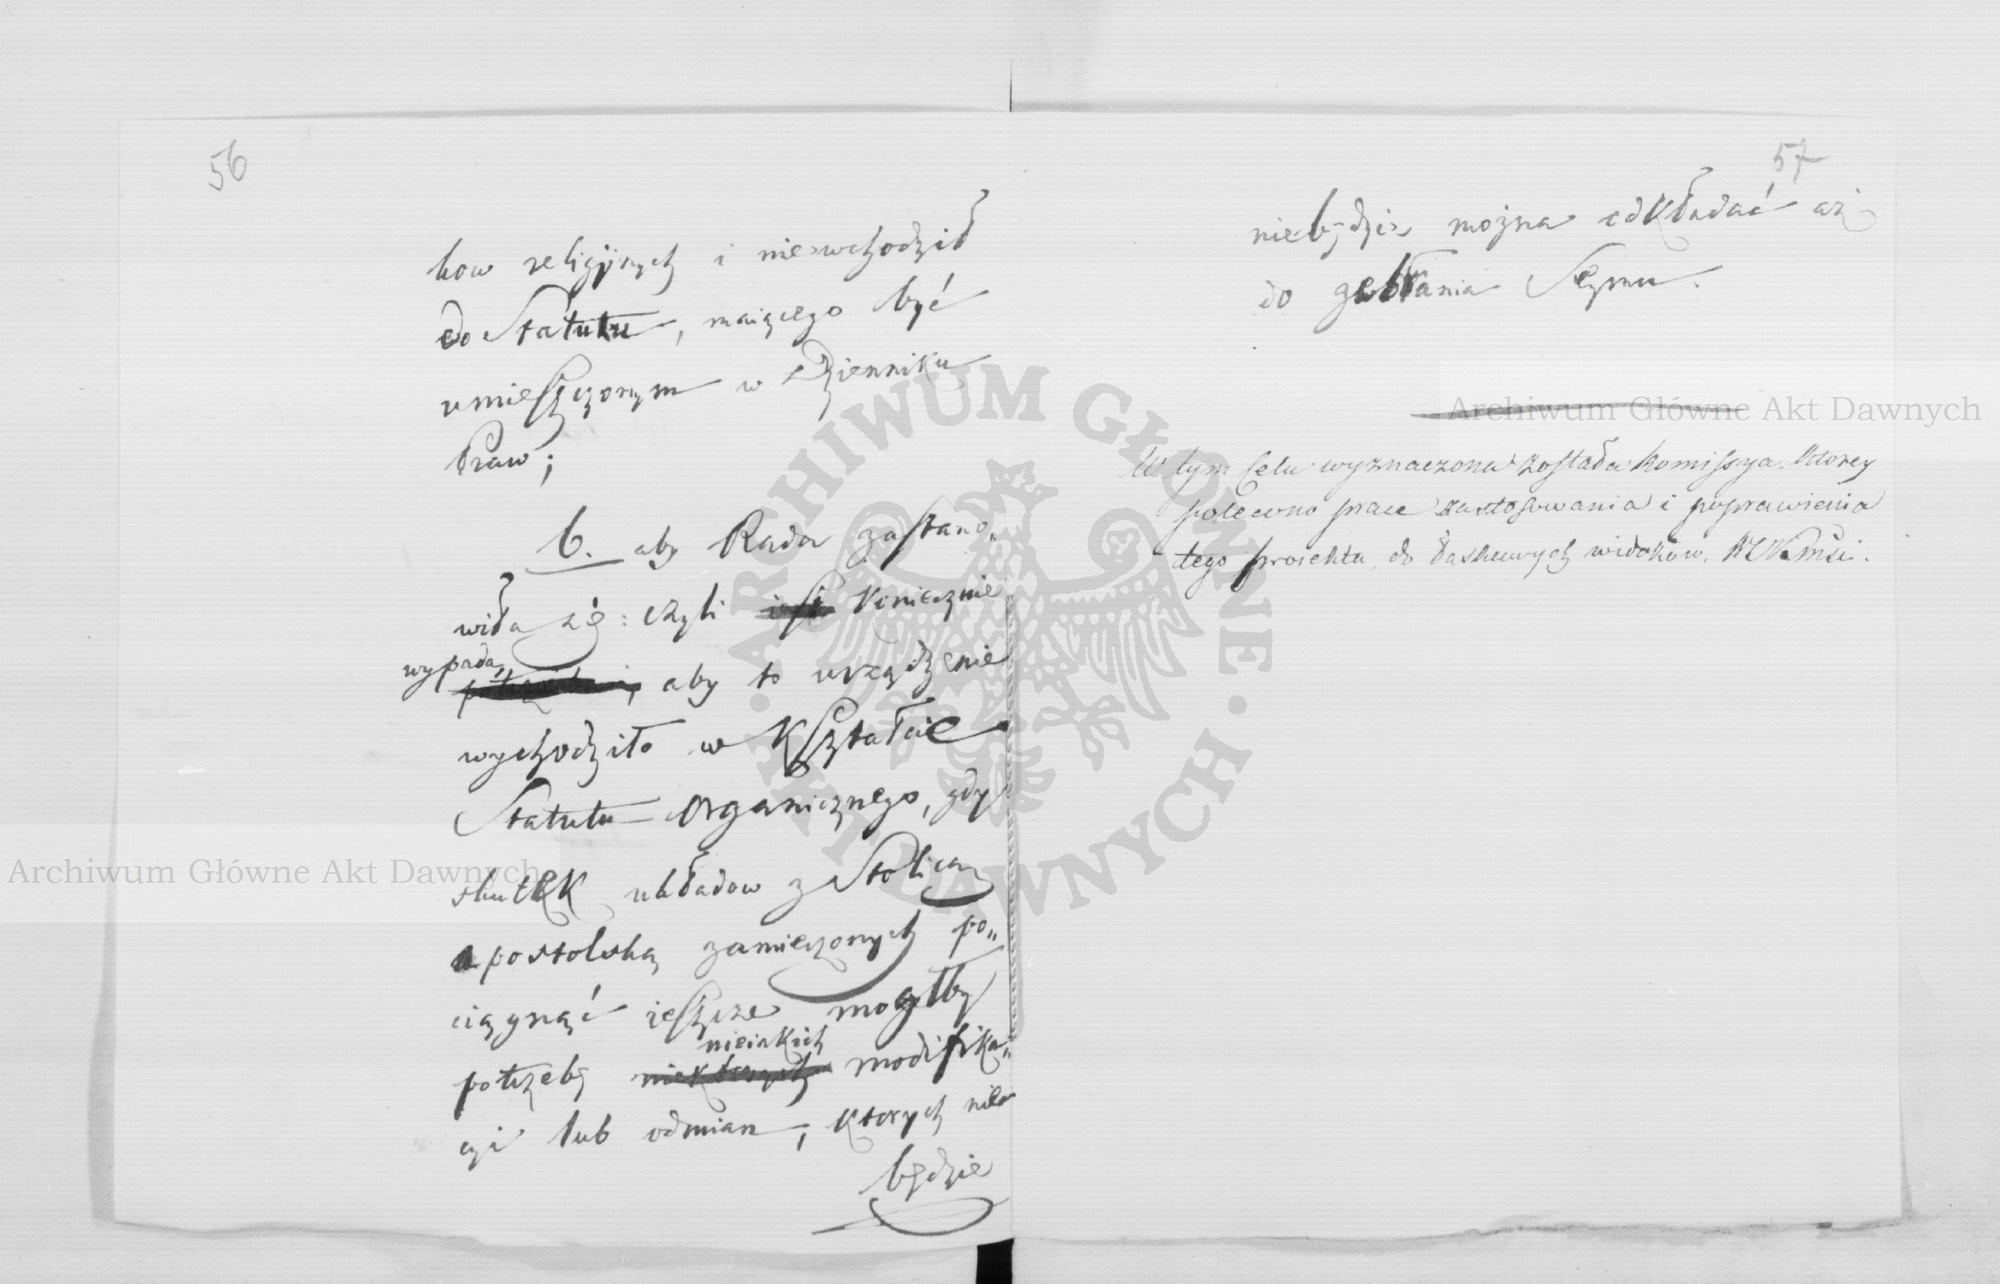 56
kow religijnych i niewchodził
do Statutu, maiącego być
umieszczonym w Dzienniku
Praw;
6. aby Rada zastano„
wiła się: czyli iest koniecznie
wypada,
aby to urządzenie
wychodziło w Kształcie
Statutu Organicznego, gdy
skutek układow z Stolicą
apostolską zamieczonych po„
ciągnąć ieszcze mogłby
nieiakich
potrzebę niektorych modifika„
cyi lub odmian, ktorych nie
będzie
57
niebędzie można odkładać aż
do zebrania Seymu.
W tym celu wyznaczona została Komissya ktorey
polecono prace zastosowania i poprawienia
tego proiektu, do Łaskawych widoków
ARCHIWUM GŁÓWNE AKT DAWNYCH
Archiwum Główne Akt Dawnych
Archiwum Główne Akt Dawnych